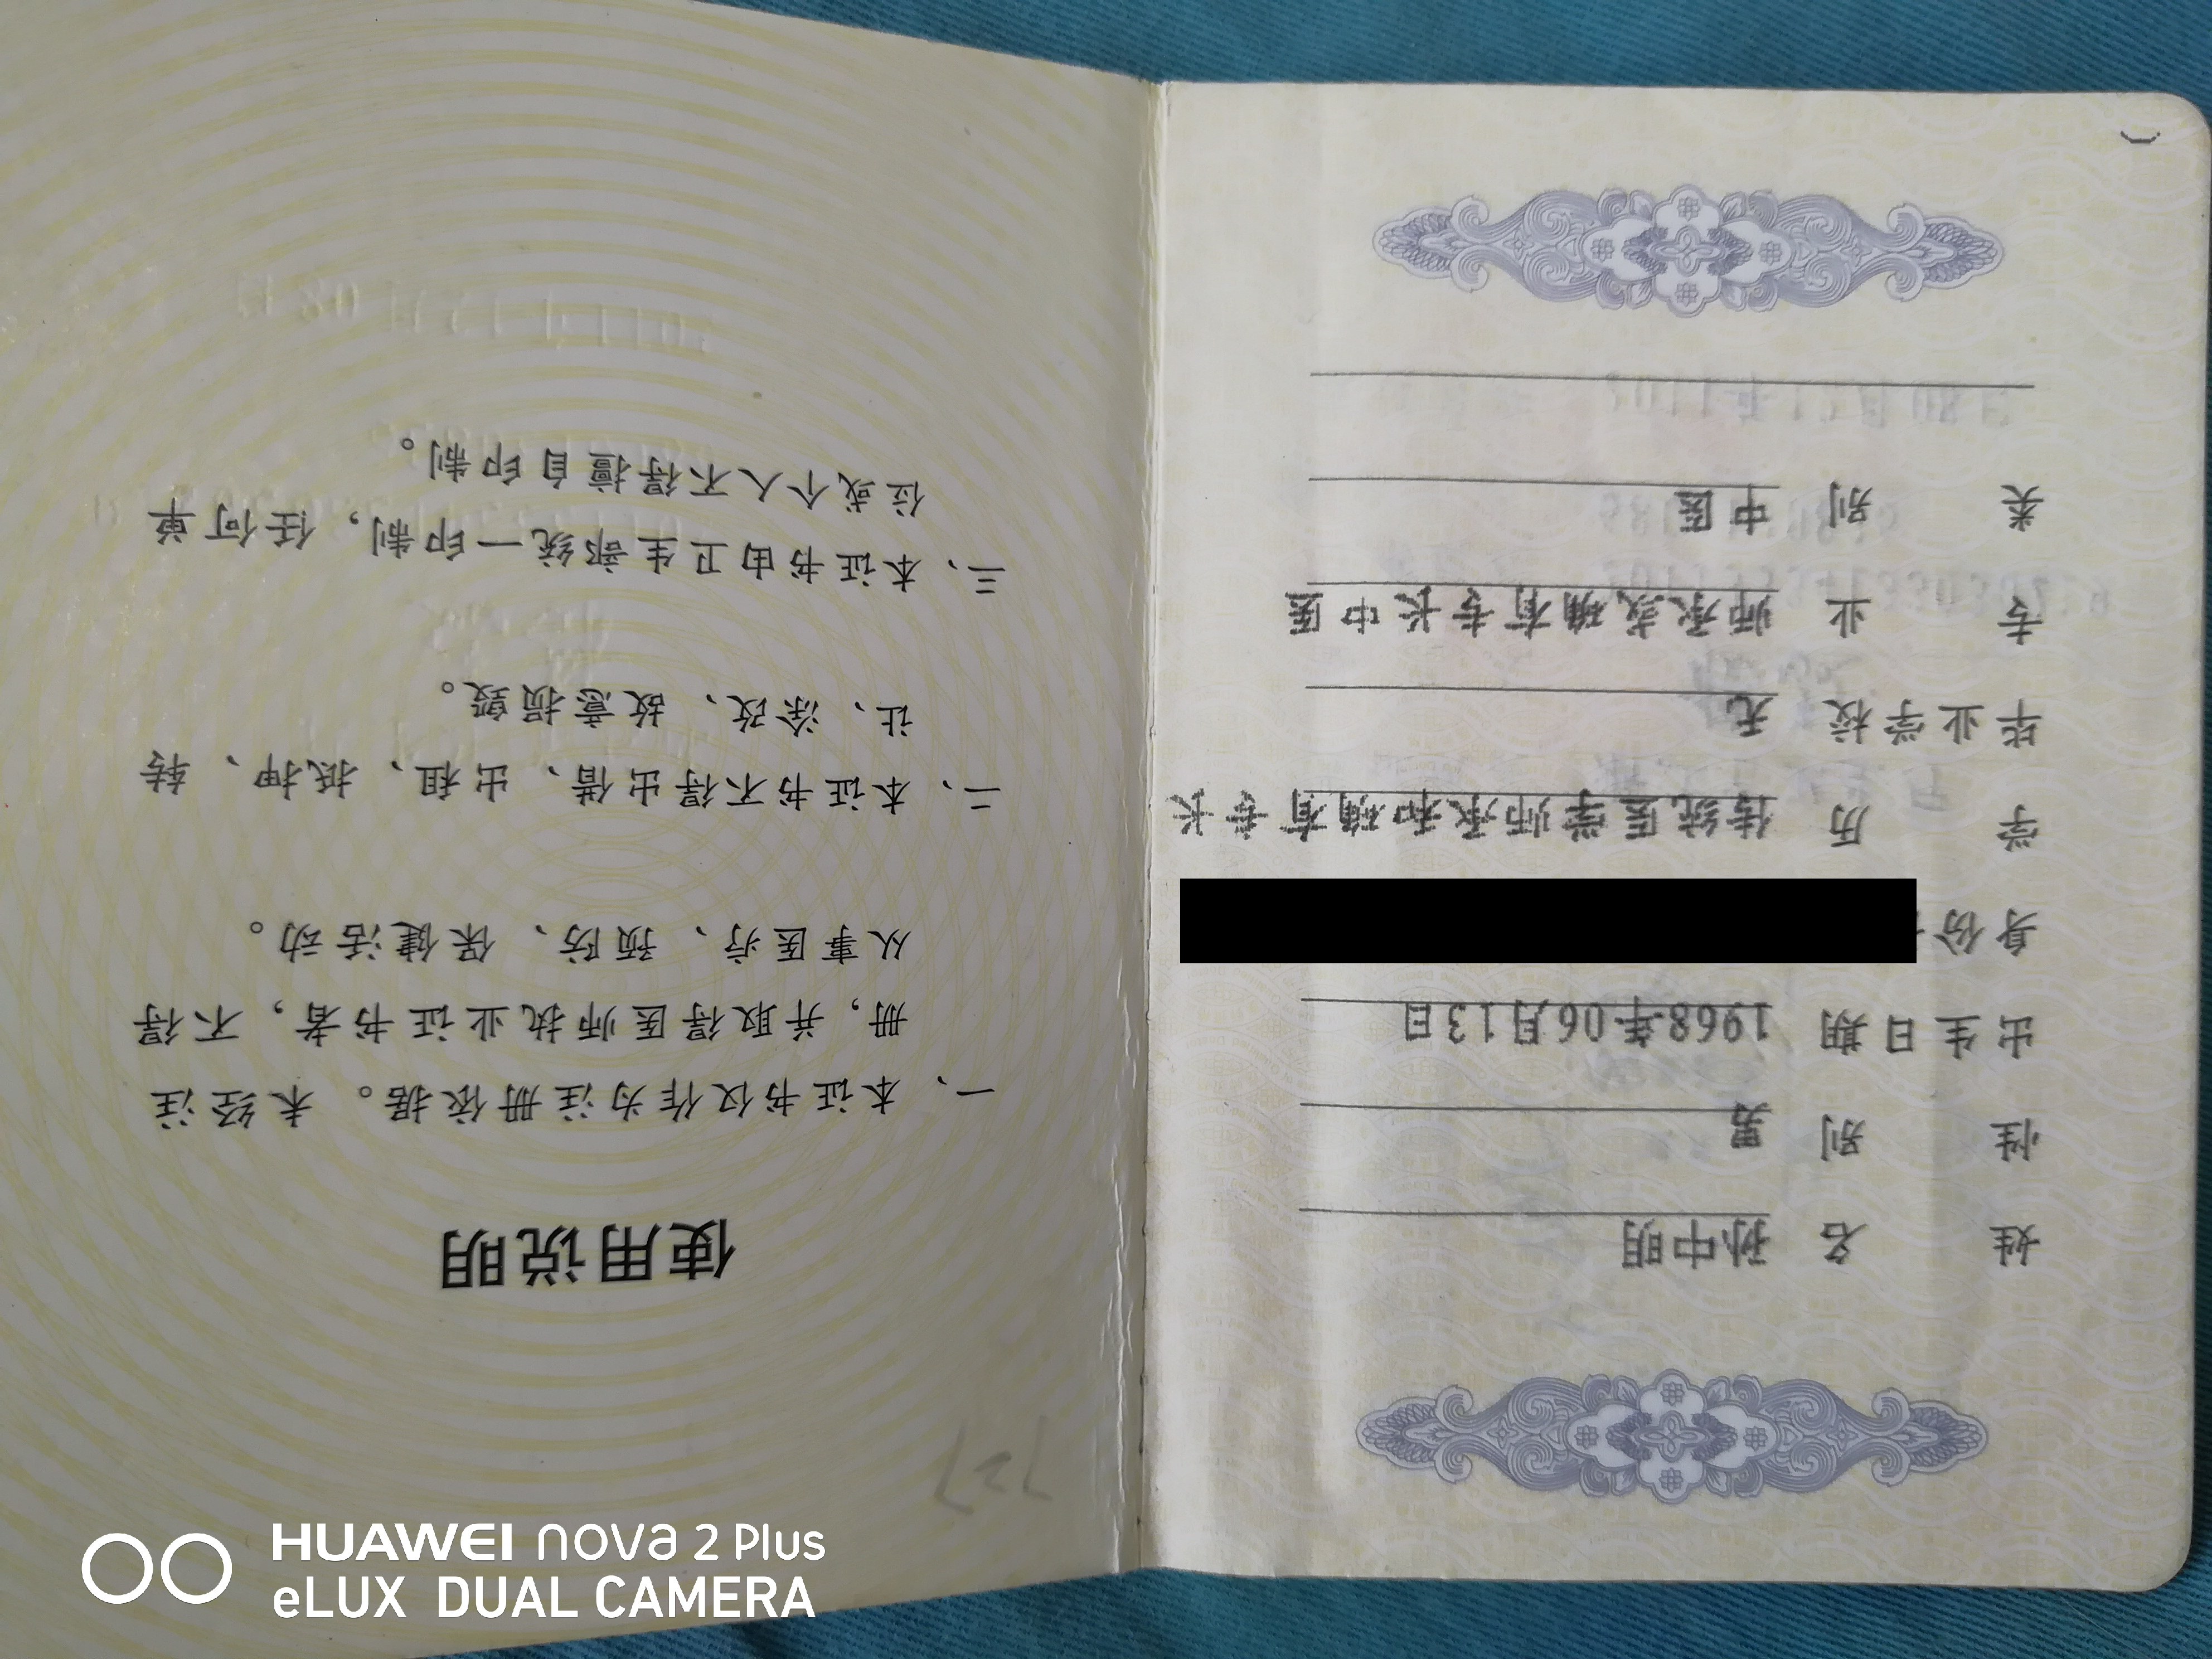 使用说明
一、本证书仅作为注册依据。未经注
册，并取得医师执业证书者，不得
从事医疗、预防、保健活动。
二、本证书不得出借、出租、抵押、转
让、涂改、故意损毁。
三、本证书由卫生部统一印制，任何单
位或个人不得擅自印制。
727
姓 名 孙中明
性 别 男
出生日期 1968年06月13日
身份
学 历 传统医学师承和确有专长
毕业学校 无
专 业 师承或确有专长中医
类 别 中医
HUAWEI nova 2 Plus
eLUX DUAL CAMERA